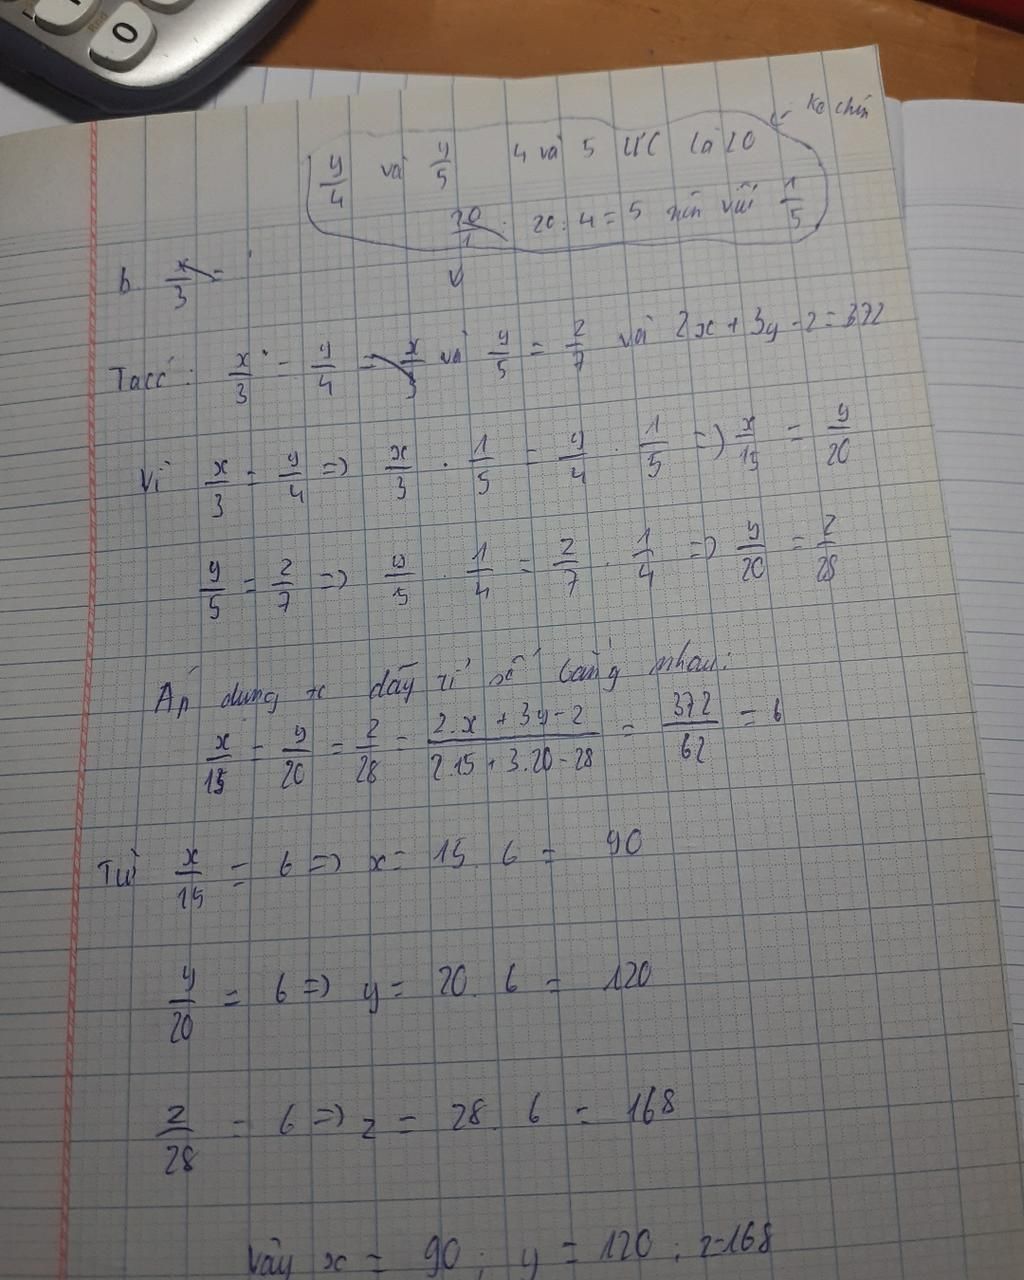 0
Ko chép
y/4 và y/5 4 và 5 ƯC là 20
20 : 4 = 5 nên với 1/5
b. x/3 =
Ta có: x/3 = y/4 và y/5 = z/7 và 2x + 3y - z = 372
Vì x/3 = y/4 => x/3 . 1/5 = y/4 . 1/5 => x/15 = y/20
y/5 = z/7 => y/5 . 1/4 = z/7 . 1/4 => y/20 = z/28
Áp dụng tc dãy tỉ số bằng nhau:
x/15 = y/20 = z/28 = 2.x + 3y - z / 2.15 + 3.20 - 28 = 372/62 = 6
Từ x/15 = 6 => x = 15 . 6 = 90
y/20 = 6 => y = 20 . 6 = 120
z/28 = 6 => z = 28 . 6 = 168
Vậy x = 90 ; y = 120 ; z = 168